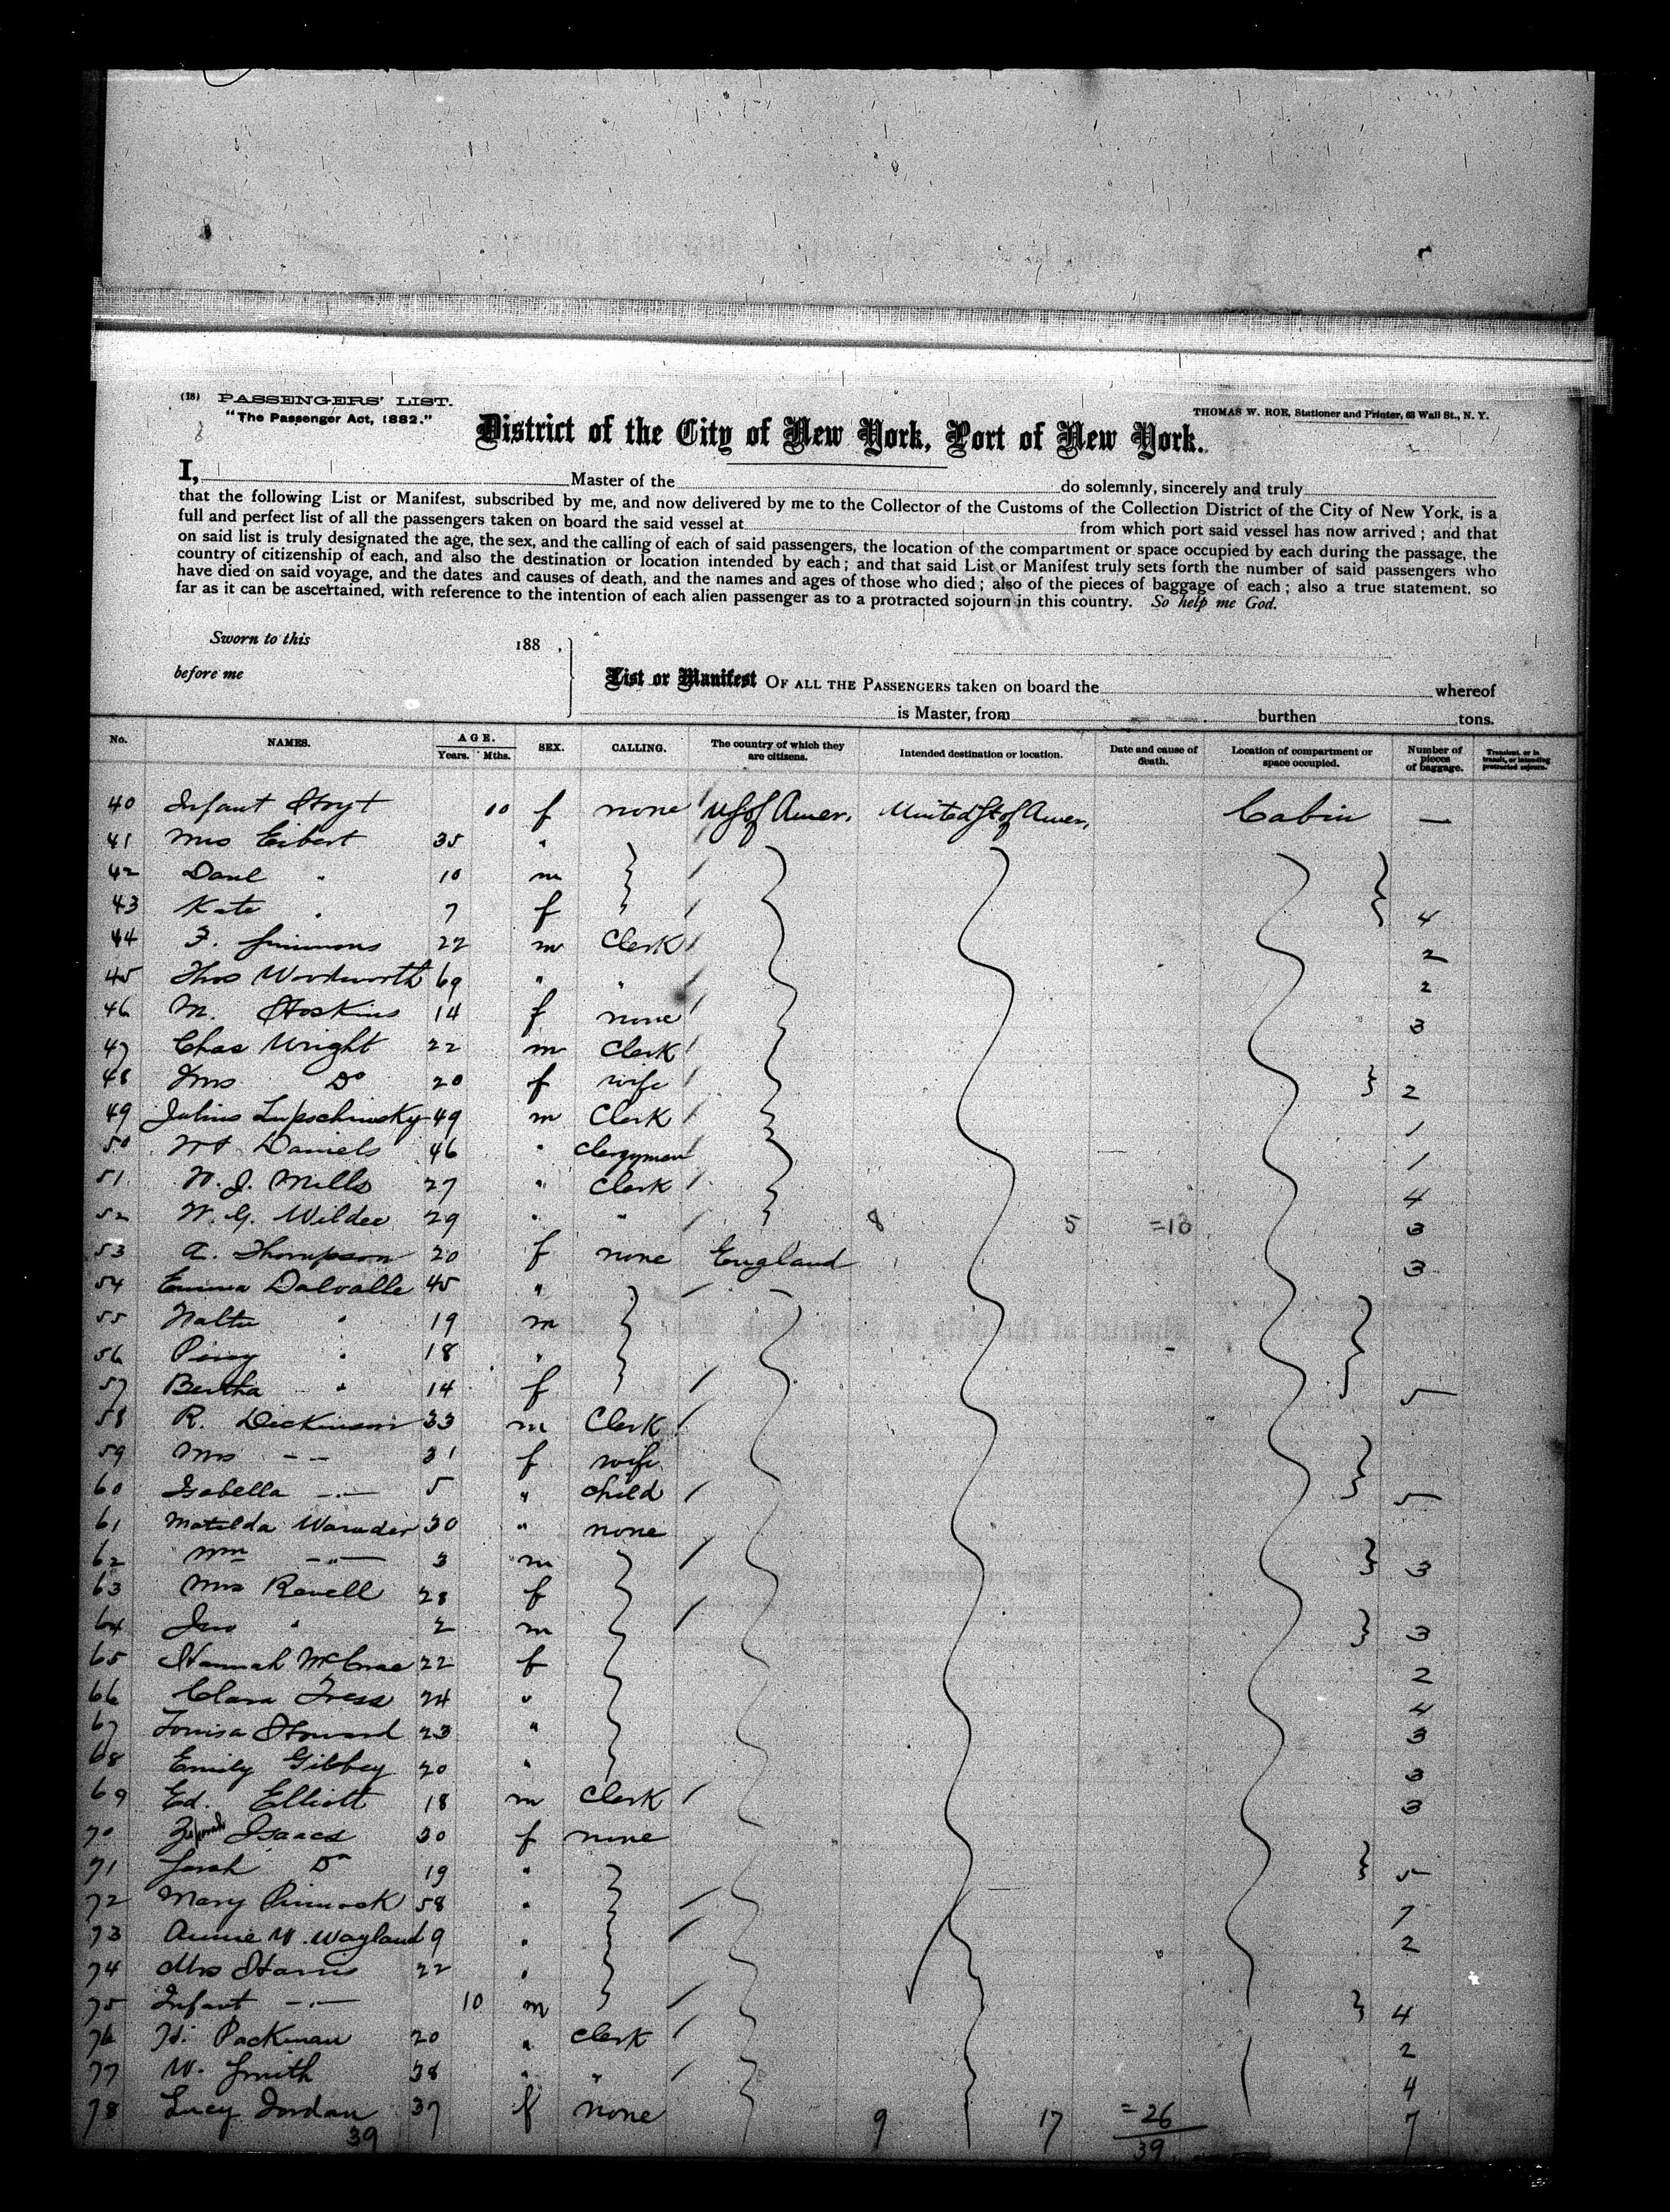 (18) PASSENGERS' LIST.
"The Passenger Act, 1882."
THOMAS W. ROE, Stationer and Printer, 63 Wall St., N. Y.
District of the City of New York, Port of New York.
I, Master of the do solemnly, sincerely and truly
that the following List or Manifest, subscribed by me, and now delivered by me to the Collector of the Customs of the Collection District of the City of New York, is a
full and perfect list of all the passengers taken on board the said vessel at from which port said vessel has now arrived; and that
on said list is truly designated the age, the sex, and the calling of each of said passengers, the location of the compartment or space occupied by each during the passage, the
country of citizenship of each, and also the destination or location intended by each; and that said List or Manifest truly sets forth the number of said passengers who
have died on said voyage, and the dates and causes of death, and the names and ages of those who died; also of the pieces of baggage of each; also a true statement, so
far as it can be ascertained, with reference to the intention of each alien passenger as to a protracted sojourn in this country. So help me God.
Sworn to this 188 .
before me
List or Manifest OF ALL THE PASSENGERS taken on board the whereof
is Master, from burthen tons.
No. NAMES. AGE. Years. Mths. SEX. CALLING. The country of which they are citizens. Intended destination or location. Date and cause of death. Location of compartment or space occupied. Number of pieces of baggage. Transient, or in transit, or intending protracted sojourn.
40 Infant Hoyt 10 f none US of Amer. United St of Amer. Cabin —
41 Mrs Eibert 35 "
42 Danl " 10 m
43 Kate " 7 f 4
44 F. Simmons 22 m Clerk 2
45 Thos Woodworth 69 " " 2
46 M. Hoskins 14 f none 3
47 Chas Wright 22 m Clerk
48 Mrs Do 20 f wife 2
49 Julius 49 m Clerk 1
50 Daniels 46 " Clergyman 1
51 W. J. Mills 27 " Clerk 4
52 W. G. Wildee 29 " " 8 5 =13 3
53 A. Thompson 20 f none England 3
54 Emma Dalvalle 45 "
55 Walter " 19 m
56 Percy " 18 "
57 Bertha " 14 f 5
58 R. Dickinson 33 m Clerk
59 Mrs — — 31 f wife
60 Isabella — " — 5 " Child 5
61 Matilda 30 " none
62 Wm — " — 3 m 3
63 Mrs Revell 28 f
64 Jno " 2 m 3
65 Hannah McCrae 22 f 2
66 Clara Tress 24 " 4
67 Louisa Howard 23 " 3
68 Emily Gibbey 20 " 3
69 Ed. Elliott 18 m Clerk 3
70 Isaacs 30 f none
71 Sarah Do 19 " 5
72 Mary Pinnock 58 " 7
73 Annie W. Wayland 9 " 2
74 Mrs Harris 22 "
75 Infant — " — 10 m 4
76 H. Packman 20 " Clerk 2
77 W. Smith 38 " " 4
78 Lucy Jordan 37 f none 9 17 =26 7
39 39